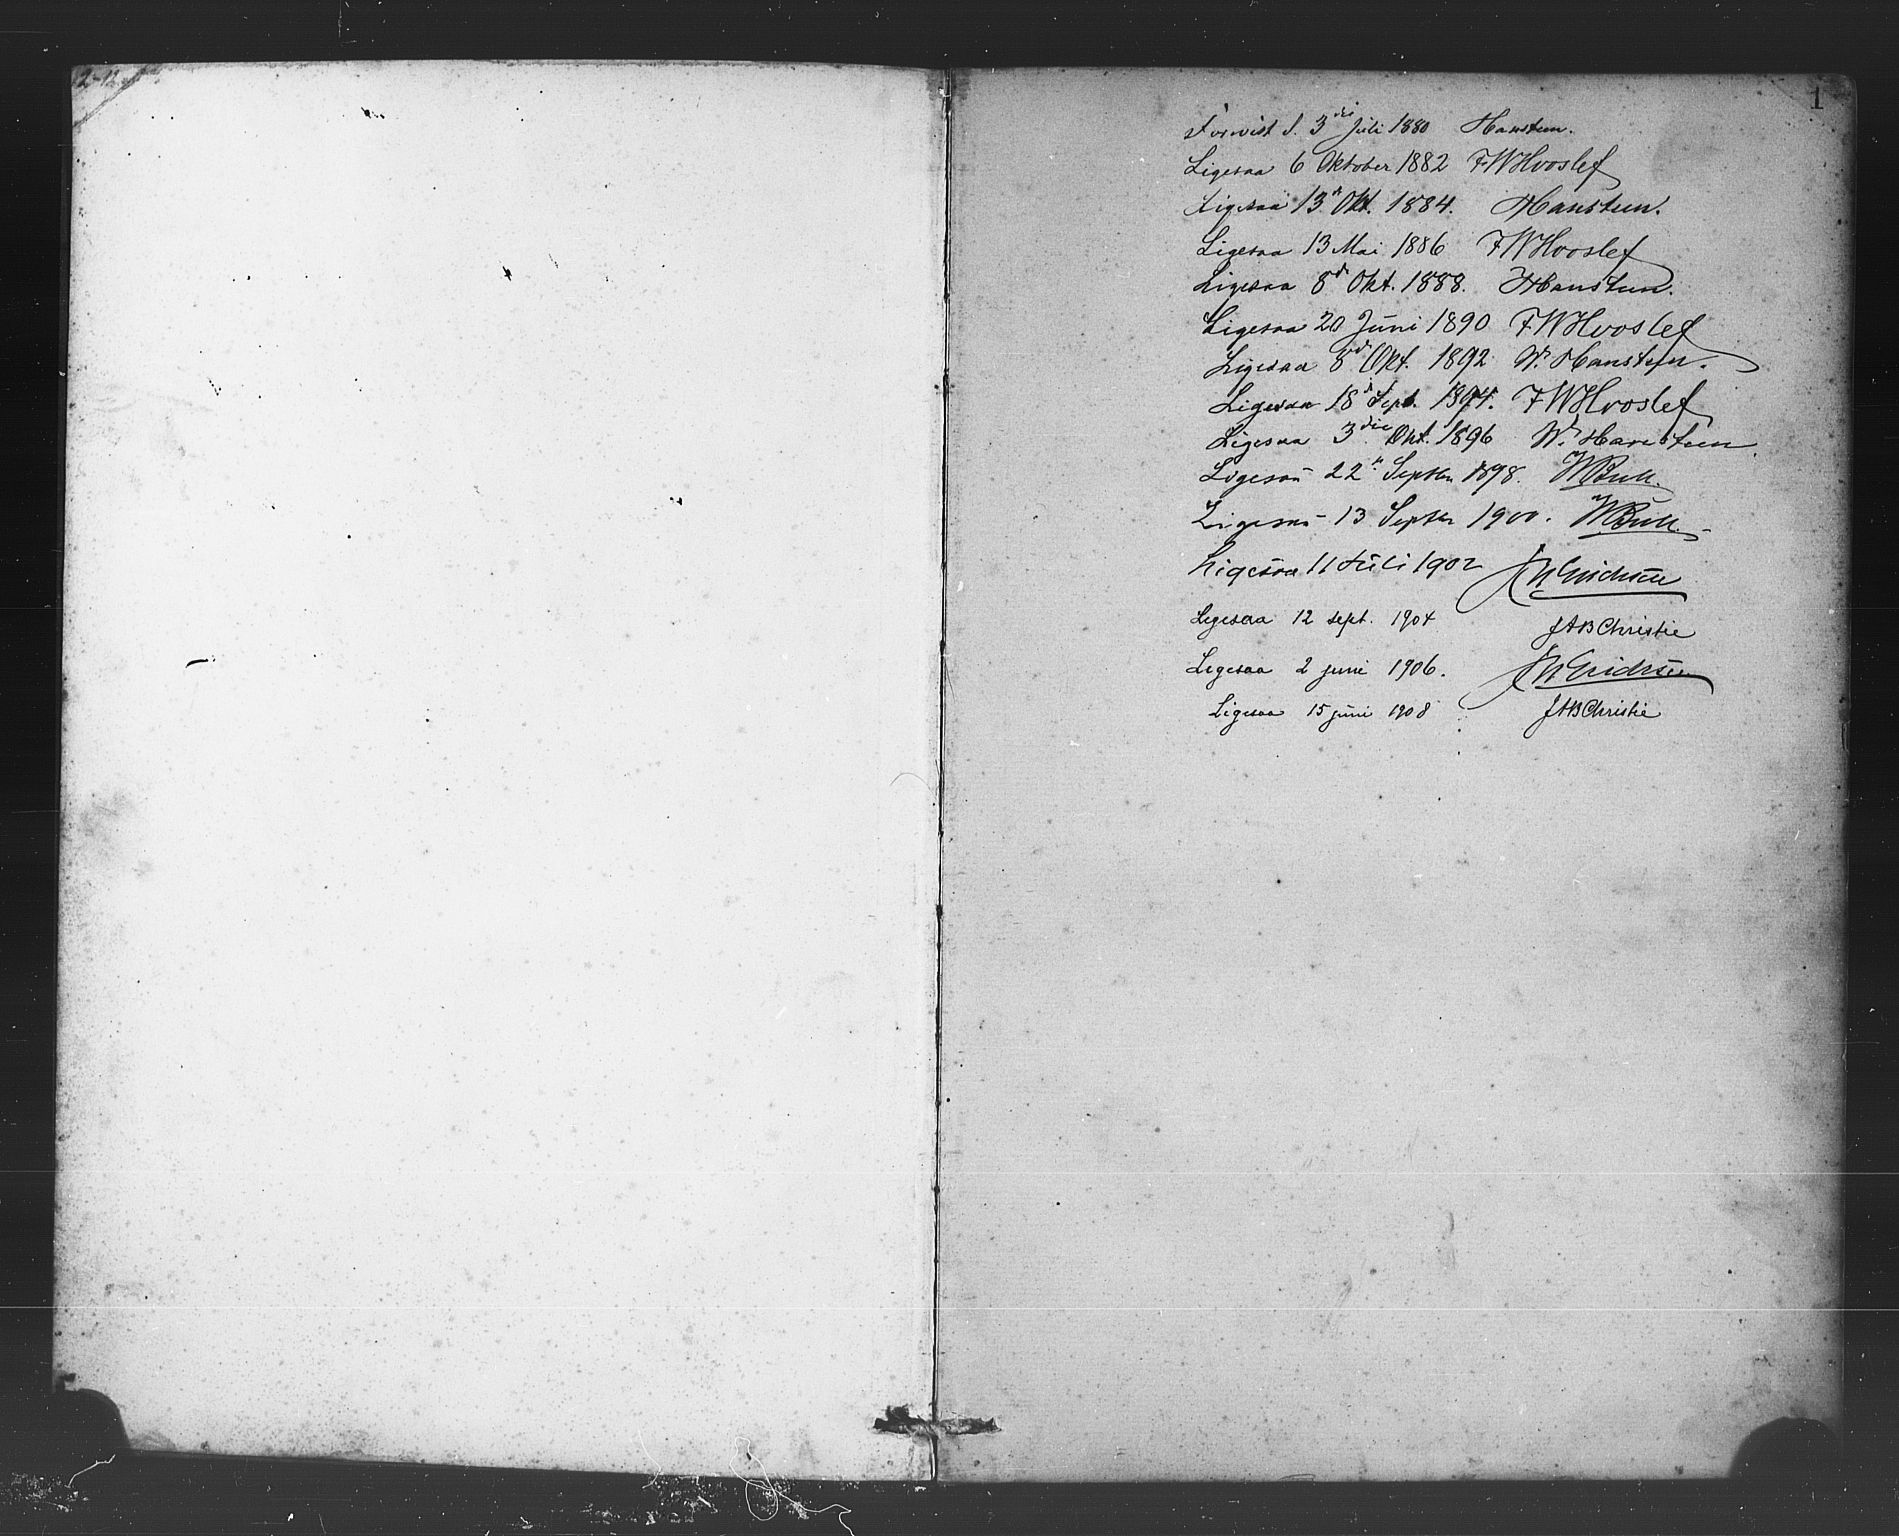 2-12
1
Forevist d. 3die Juli 1880 Hansteen.
Ligesaa 6 Oktober 1882 FWHvoslef
Ligesaa 13de Okt. 1884. Hansteen.
Ligesaa 13 Mai 1886 FWHvoslef
Ligesaa 8de Okt. 1888. Hansteen.
Ligesaa 20 Juni 1890 FWHvoslef
Ligesaa 8de Okt. 1892 W. Hansteen.
Ligesaa 18de Sept. 1894. FWHvoslef
Ligesaa 3die Okt. 1896 W. Hansteen.
Ligesaa 22de Septbr 1898. WBull.
Ligesaa 13 Septbr 1900. WBull.
Ligesaa 11 Juli 1902 Erichsen
Ligesaa 12 sept. 1904 JABChristie
Ligesaa 2 juni 1906. Erichsen
Ligesaa 15 juni 1908 JABChristie